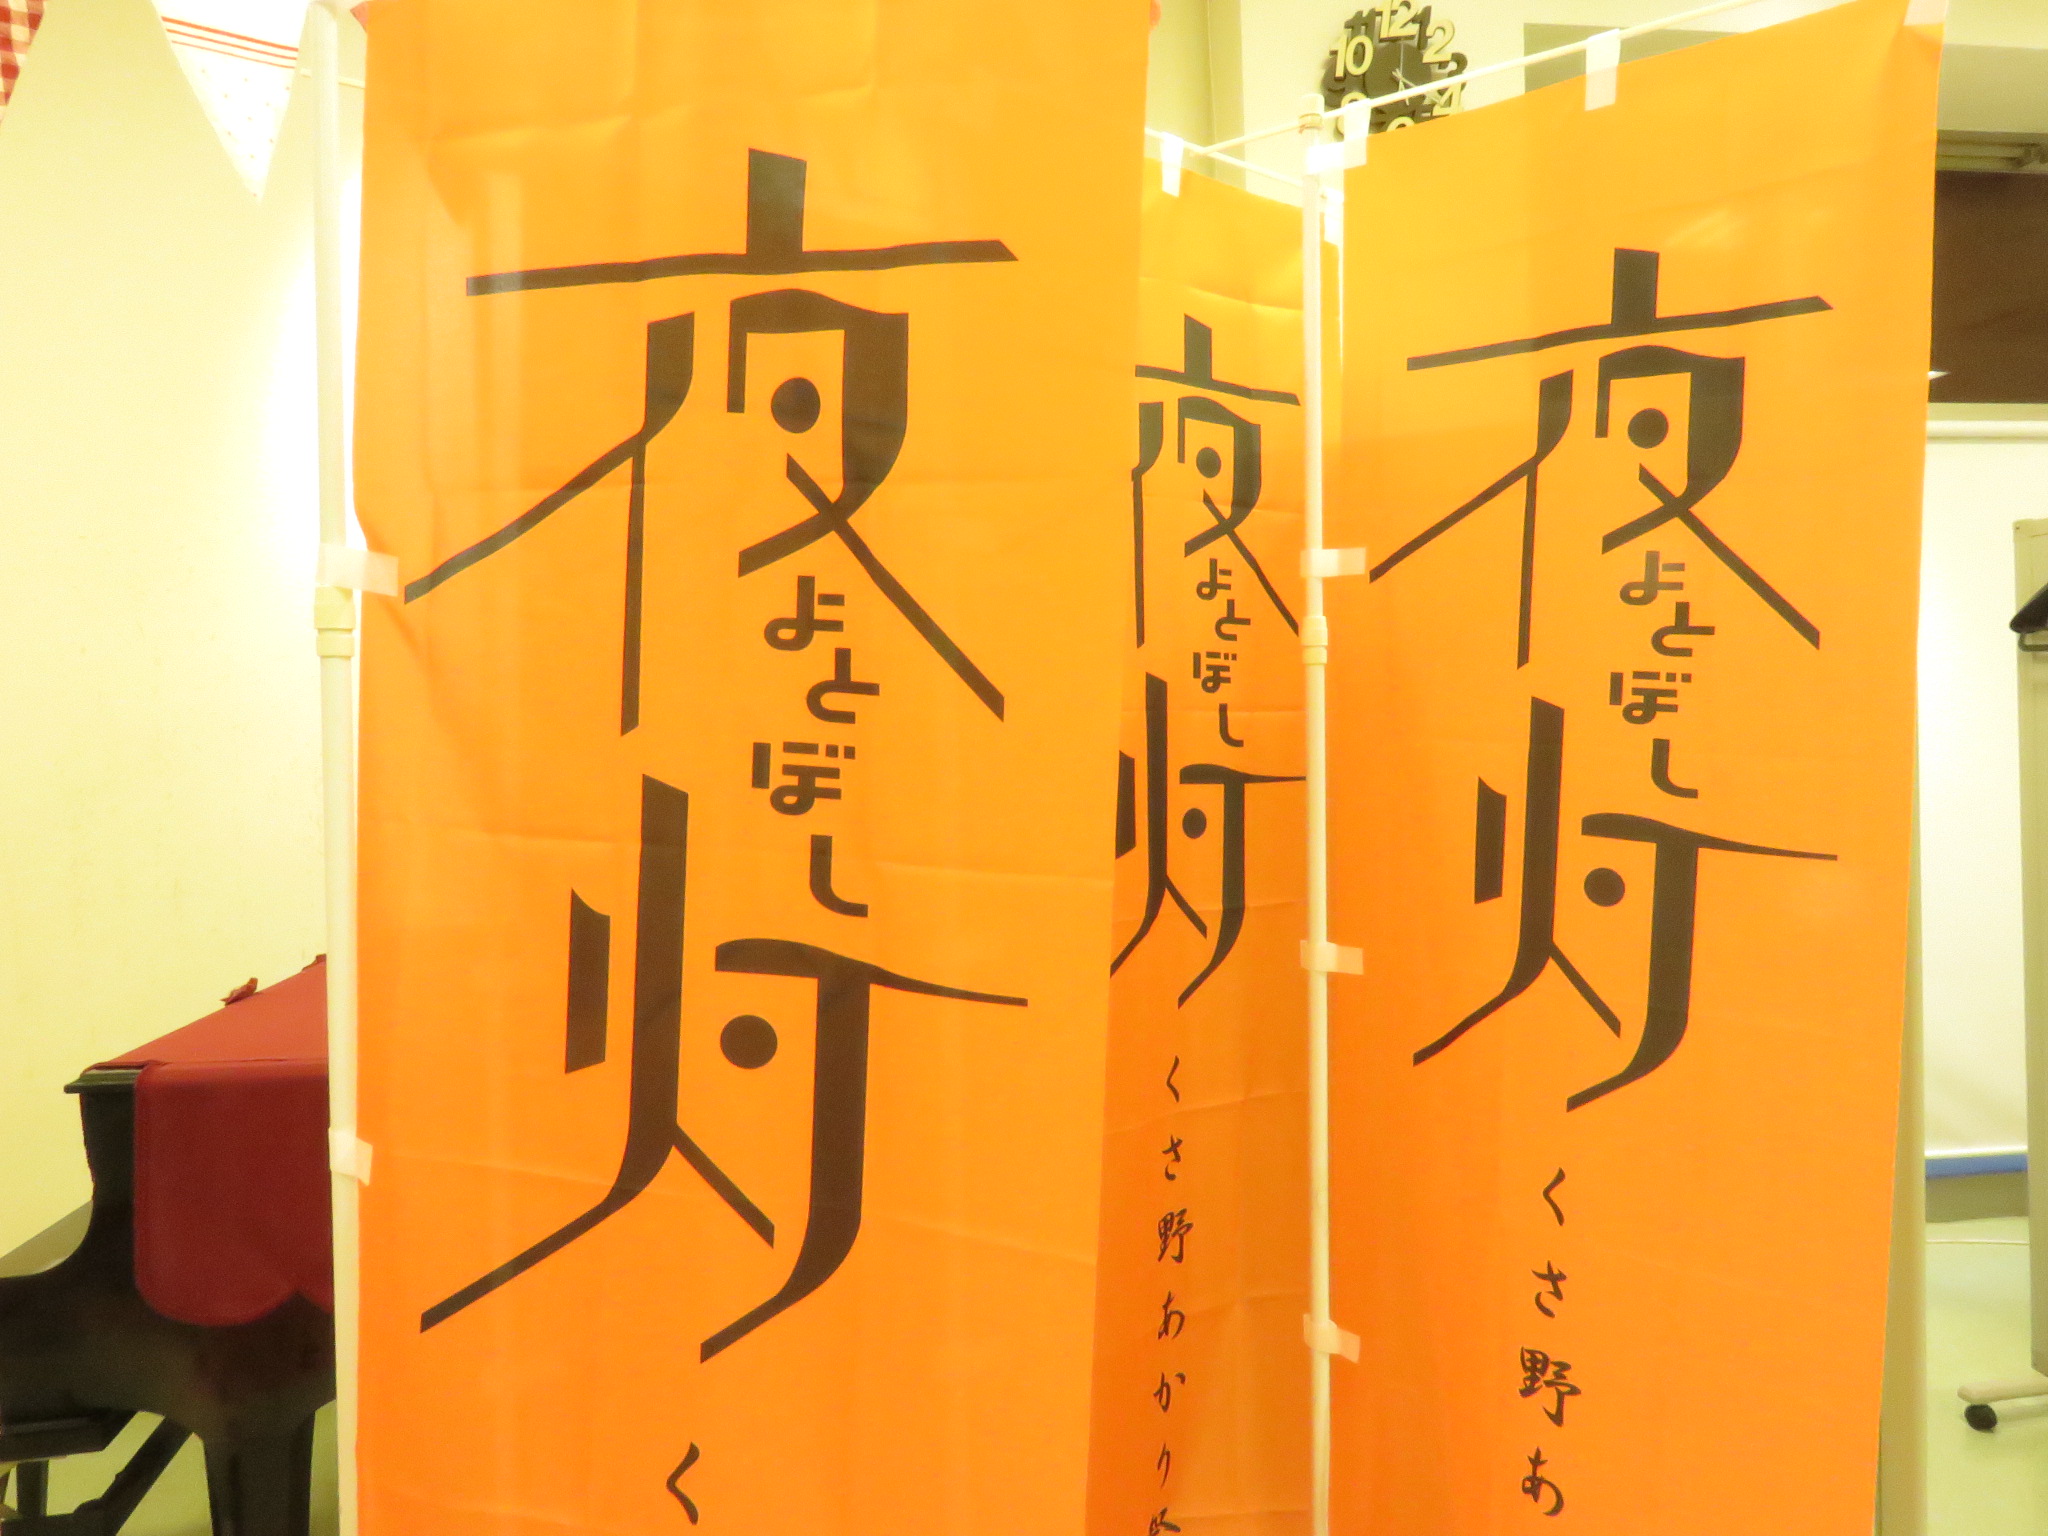 夜灯
よとぼし
く
夜灯
よとぼし
くさ野あかり
夜灯
よとぼし
くさ野あ
10 11 12 1 2 3 4